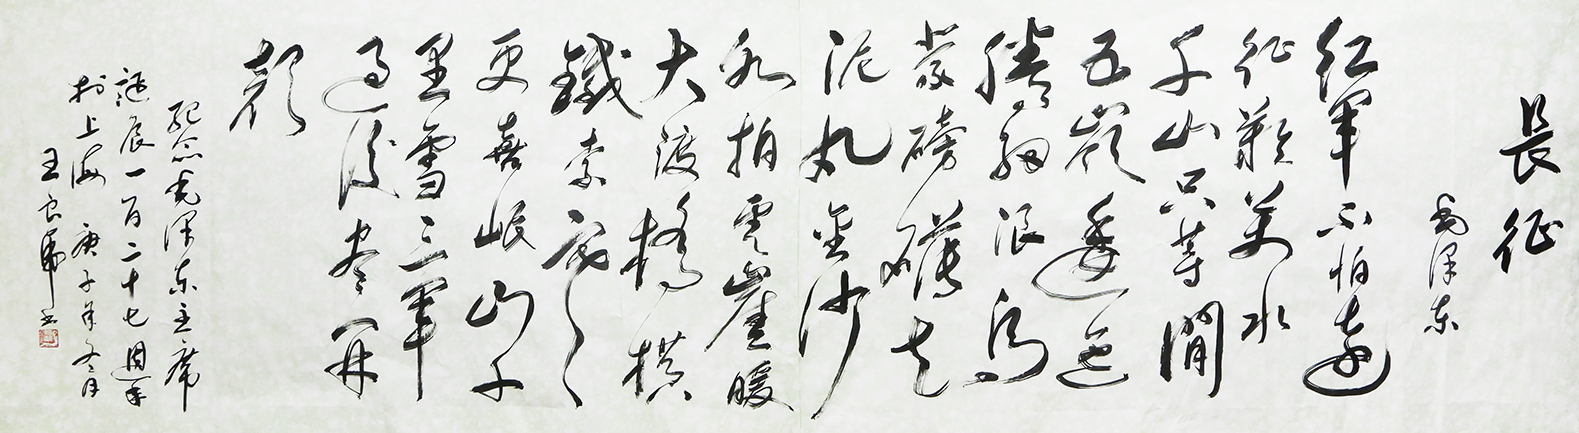 長征
毛澤東
红軍不怕遠
征難萬水
千山只等閒
五嶺逶迤
騰細浪烏
蒙磅礴走
泥丸金沙
水拍雲崖暖
大渡橋橫
鐵索寒
更喜岷山千
里雪三軍
過後盡開
顏
紀念毛澤東主席
誕辰一百二十七週年
於上海 庚子年冬月
王